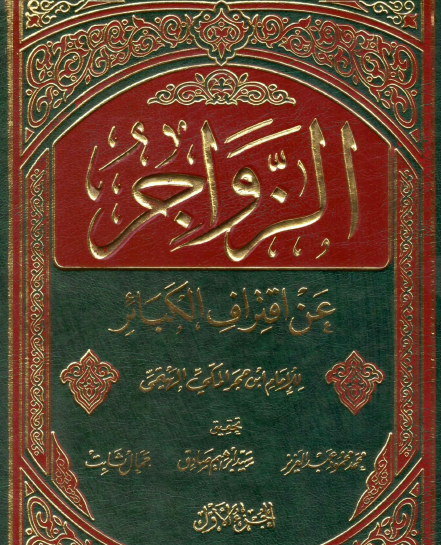 الزَّوَاجِرُ
عَنْ اقْتِرَافِ الكَبَائِر
للإمام ابن حجر المكي الهيتمي
تحقيق
محمد محمود عبد العزيز سيد إبراهيم صادق جمال ثابت
الجزء الأول